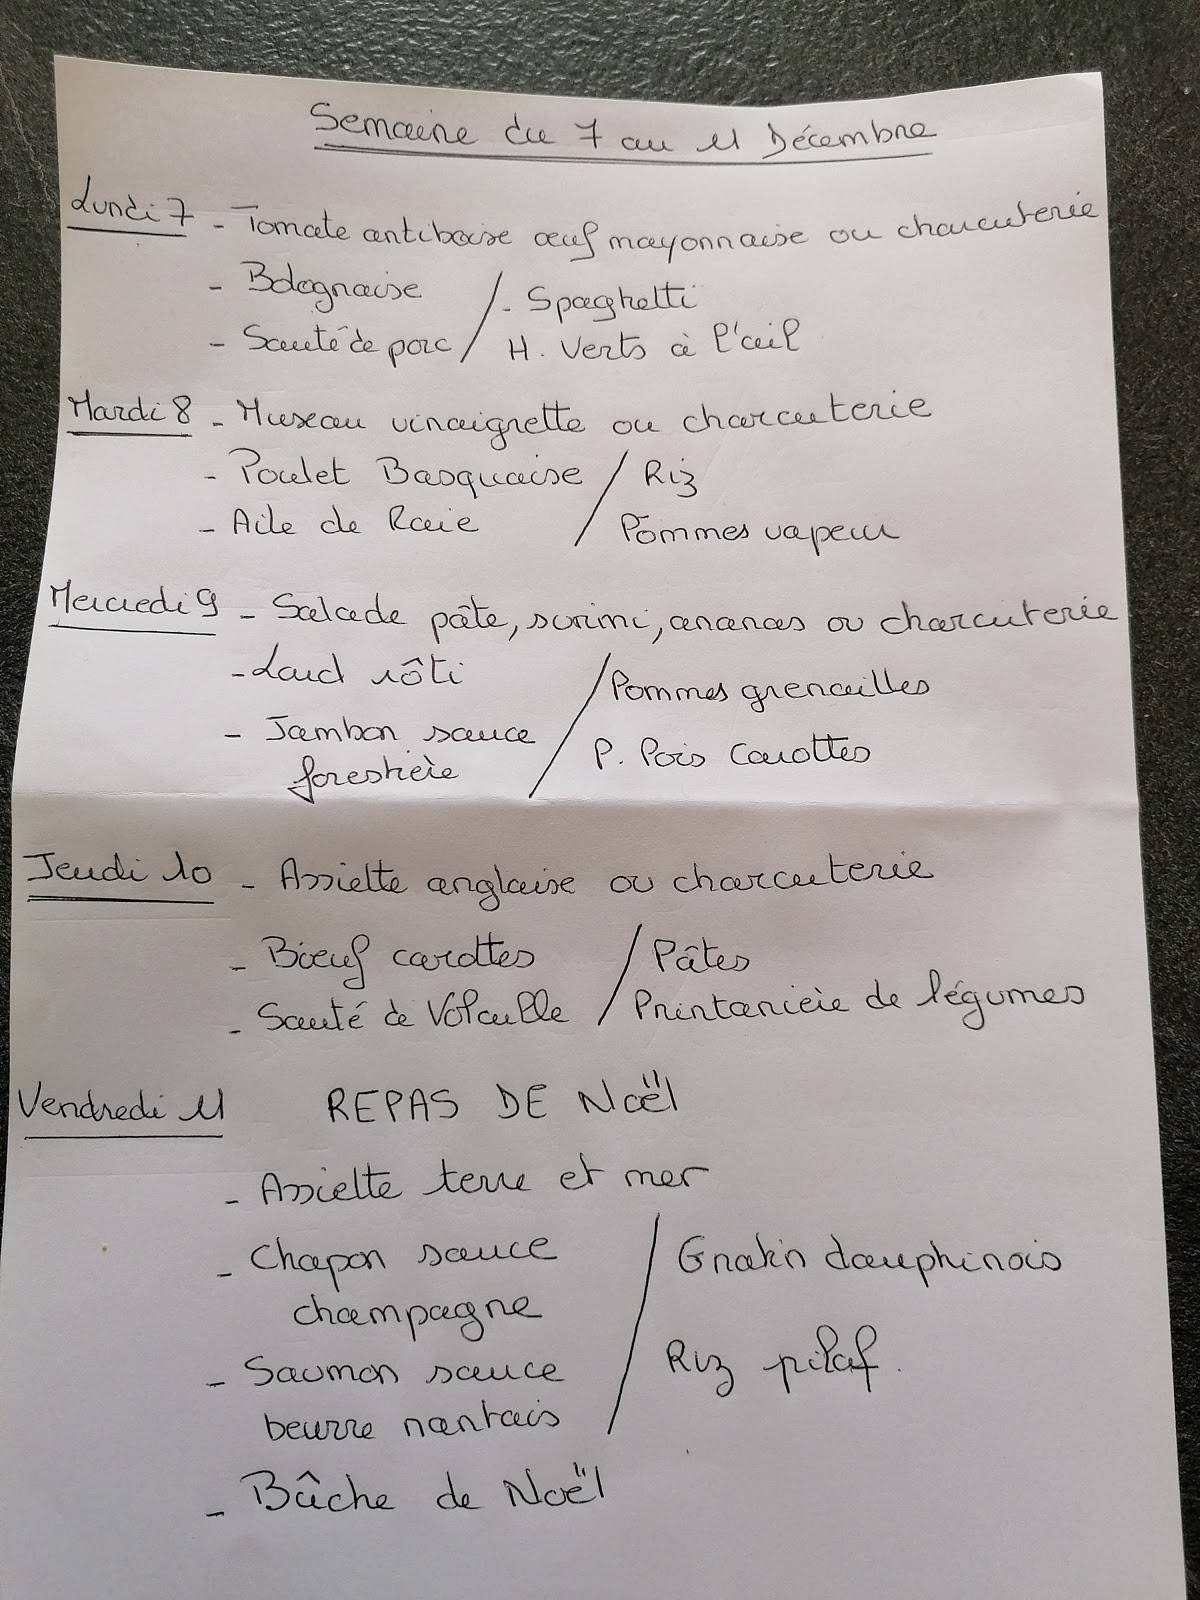 Semaine du 7 au 11 Décembre
Lundi 7 - Tomate antiboise œuf mayonnaise ou charcuterie
- Bolognaise / - Spaghetti
- Sauté de porc / H. Verts à l'ail
Mardi 8 - Museau vinaigrette ou charcuterie
- Poulet Basquaise / Riz
- Aile de Raie / Pommes vapeur
Mercredi 9 - Salade pâte, surimi, ananas ou charcuterie
- Lard rôti / Pommes grenailles
- Jambon sauce / P. Pois Carottes
forestière
Jeudi 10 - Assiette anglaise ou charcuterie
- Bœuf carottes / Pâtes
- Sauté de Volaille / Printanière de légumes
Vendredi 11 REPAS DE Noël
- Assiette terre et mer
- Chapon sauce / Gratin dauphinois
champagne
- Saumon sauce / Riz pilaf.
beurre nantais
- Bûche de Noël